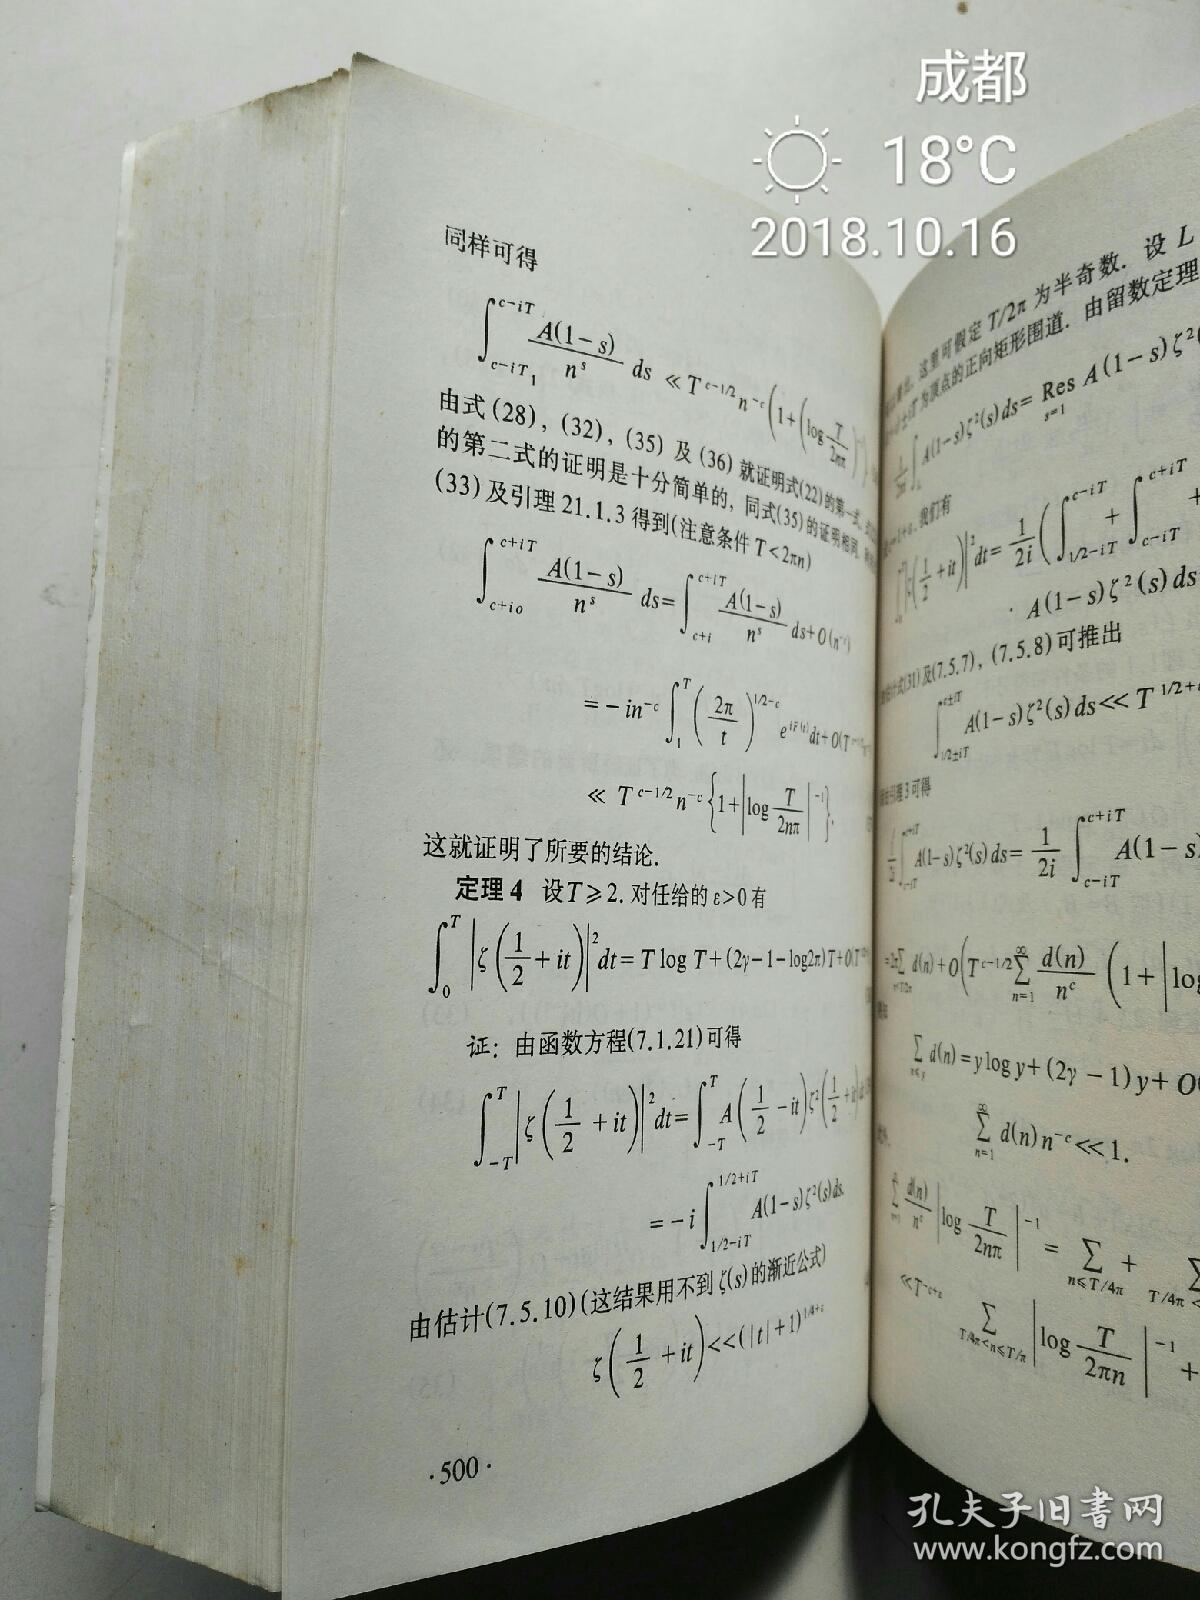 成都
18°C
2018.10.16
同样可得
∫_{c-iT_1}^{c-iT} A(1-s)/n^s ds ≪ T^{c-1/2} n^{-c} (1+(log T/2nπ
由式(28), (32), (35) 及 (36) 就证明式(22)的第一式.
的第二式的证明是十分简单的, 同式(35)的证明相同,
(33)及引理21.1.3得到(注意条件T<2πn)
∫_{c+i0}^{c+iT} A(1-s)/n^s ds = ∫_{c+i}^{c+iT} A(1-s)/n^s ds + O(n^{-c})
= -in^{-c} ∫_1^T (2π/t)^{1/2-c} e^{iF(t)} dt + O(T
≪ T^{c-1/2} n^{-c} {1+|log T/2nπ|^{-1}}.
这就证明了所要的结论.
定理4 设T⩾2. 对任给的ε>0有
∫_0^T |ζ(1/2+it)|^2 dt = T log T + (2γ-1-log2π)T + O(T
证: 由函数方程(7.1.21)可得
∫_{-T}^T |ζ(1/2+it)|^2 dt = ∫_{-T}^T A(1/2-it) ζ^2(1/2+it)
= -i ∫_{1/2-iT}^{1/2+iT} A(1-s)ζ^2(s)ds.
由估计(7.5.10)(这结果用不到ζ(s)的渐近公式)
ζ(1/2+it) ≪ (|t|+1)^{1/4+ε}
·500·
这里可假定T/2π为半奇数. 设 L
为顶点的正向矩形围道. 由留数定理
A(1-s)ζ^2(s)ds = Res_{s=1} A(1-s)ζ^2(
我们有
(1/2+it)|^2 dt = 1/2i (∫_{1/2-iT}^{c-iT} + ∫_{c-iT}^{c+iT} +
· A(1-s)ζ^2(s)ds
(31)及(7.5.7), (7.5.8)可推出
∫_{1/2±iT}^{c±iT} A(1-s)ζ^2(s)ds ≪ T^{1/2+
引理3可得
A(1-s)ζ^2(s)ds = 1/2i ∫_{c-iT}^{c+iT} A(1-s)
d(n) + O(T^{c-1/2} Σ_{n=1}^∞ d(n)/n^c (1+|log
Σ_{n⩽y} d(n) = y log y + (2γ-1)y + O(
Σ_{n=1}^∞ d(n)n^{-c} ≪ 1.
d(n)/n^c |log T/2nπ|^{-1} = Σ_{n⩽T/4π} + Σ_{T/4π<
Σ_{T/4π<n⩽T/π} |log T/2πn|^{-1} +
孔夫子旧书网
www.kongfz.com